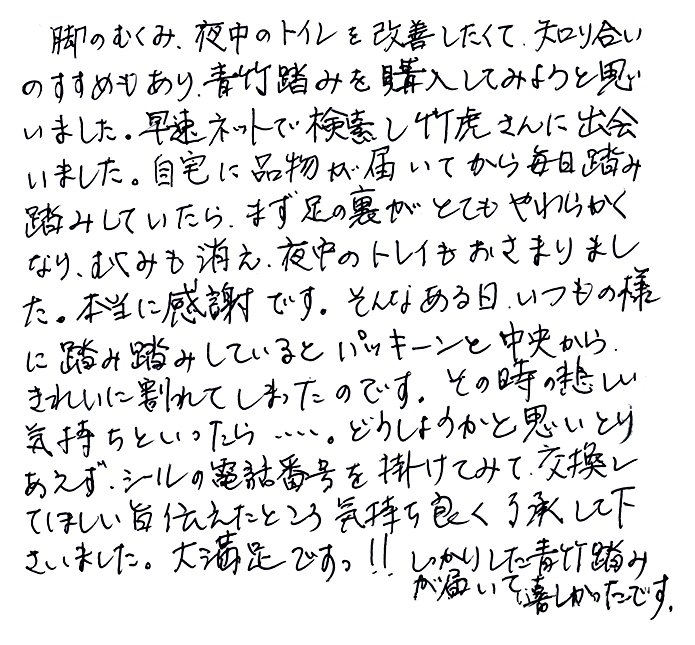 脚のむくみ、夜中のトイレを改善したくて、知り合い
のすすめもあり、青竹踏みを購入してみようと思
いました。早速ネットで検索し竹虎さんに出会
いました。自宅に品物が届いてから毎日踏み
踏みしていたら、まず足の裏がとてもやわらかく
なり、むくみも消え、夜中のトレイもおさまりまし
た。本当に感謝です。そんなある日、いつもの様
に踏み踏みしているとパッキーンと中央から、
きれいに割れてしまったのです。その時の悲しい
気持ちといったら‥‥。どうしようかと思いとり
あえず、シールの電話番号を掛けてみて、交換し
てほしい旨伝えたところ気持ち良く了承して下
さいました。大満足ですっ!! しっかりした青竹踏み
が届いて、喜しかったです。